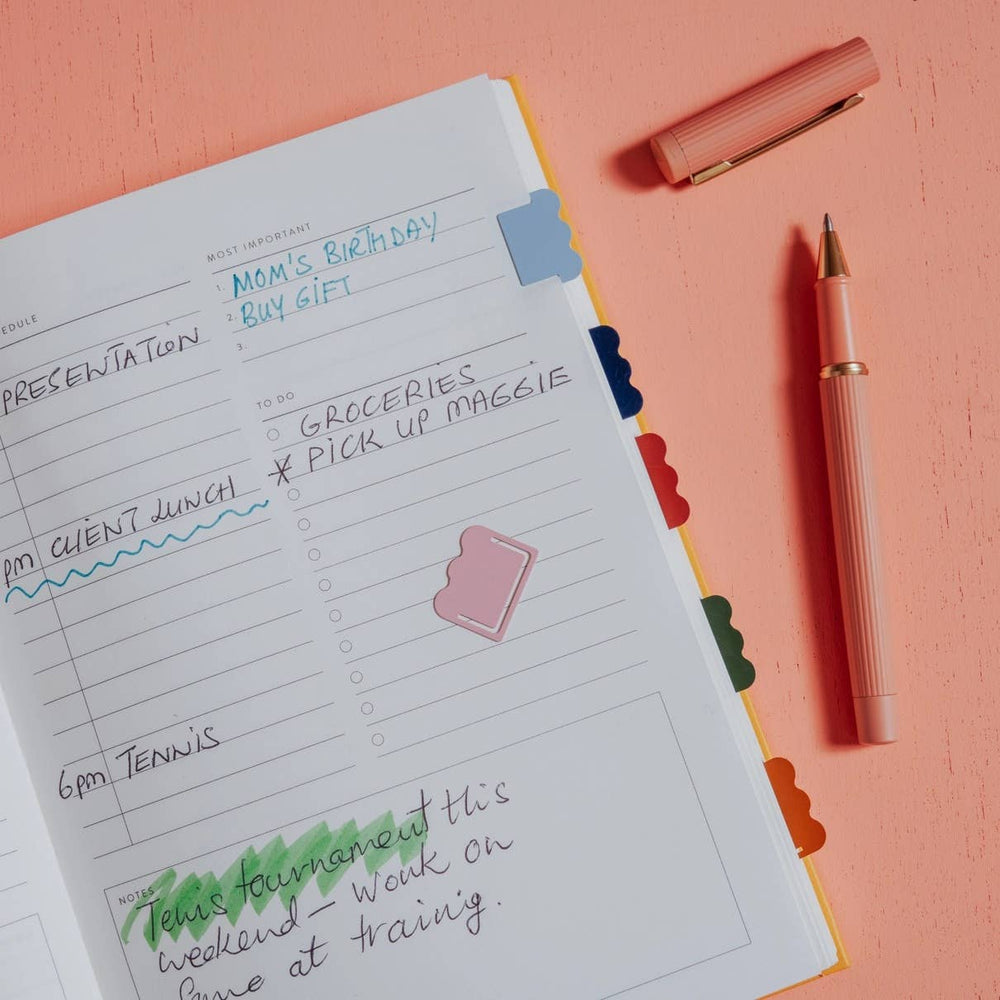 MOST IMPORTANT
1. MOM'S BIRTHDAY
2. BUY GIFT
3.
EDULE
PRESENTATION
pm CLIENT LUNCH
6pm TENNIS
TO DO
GROCERIES
PICK UP MAGGIE
NOTES
Tenis tournament this
weekend – work on
at trainig.